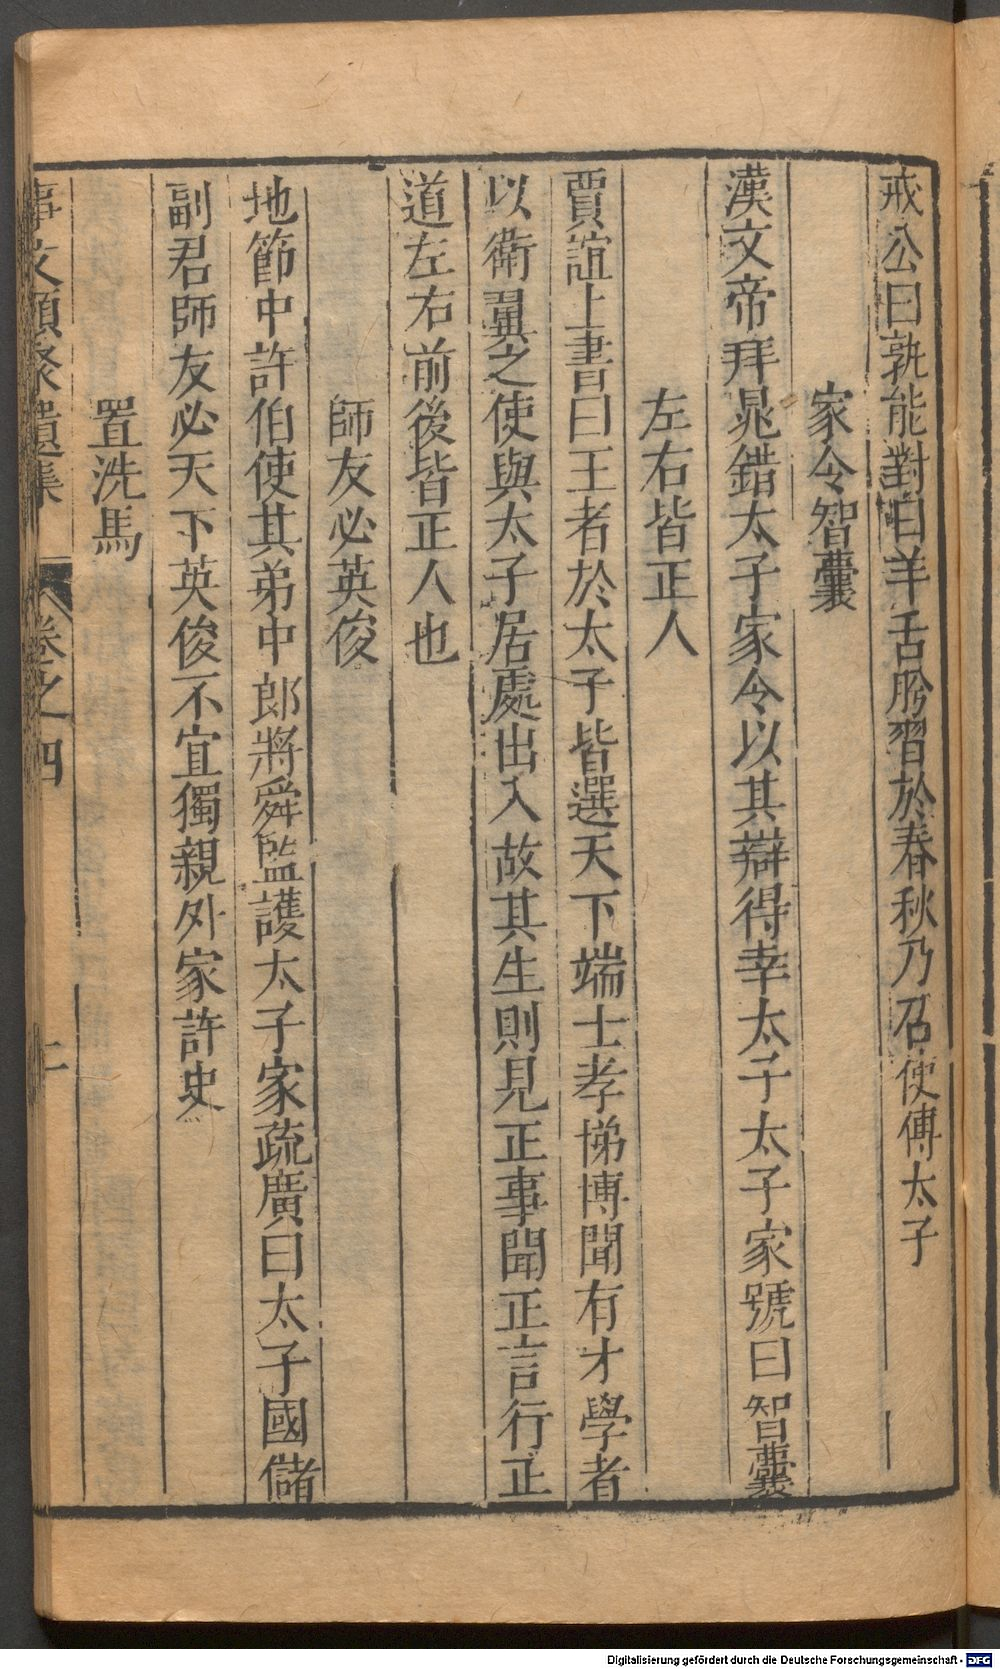 戒公曰孰能對曰羊舌肸習於春秋乃召使傅太子
家令智囊
漢文帝拜晁錯太子家令以其辯得幸太子太子家號曰智囊
左右皆正人
賈誼上書曰王者於太子皆選天下端士孝悌博聞有才學者
以衛翼之使與太子居處出入故其生則見正事聞正言行正
道左右前後皆正人也
師友必英俊
地節中許伯使其弟中郎將舜監護太子家疏廣曰太子國儲
副君師友必天下英俊不宜獨親外家許史
置洗馬
事文類聚遺集 卷之四
Digitalisierung gefördert durch die Deutsche Forschungsgemeinschaft - DFG